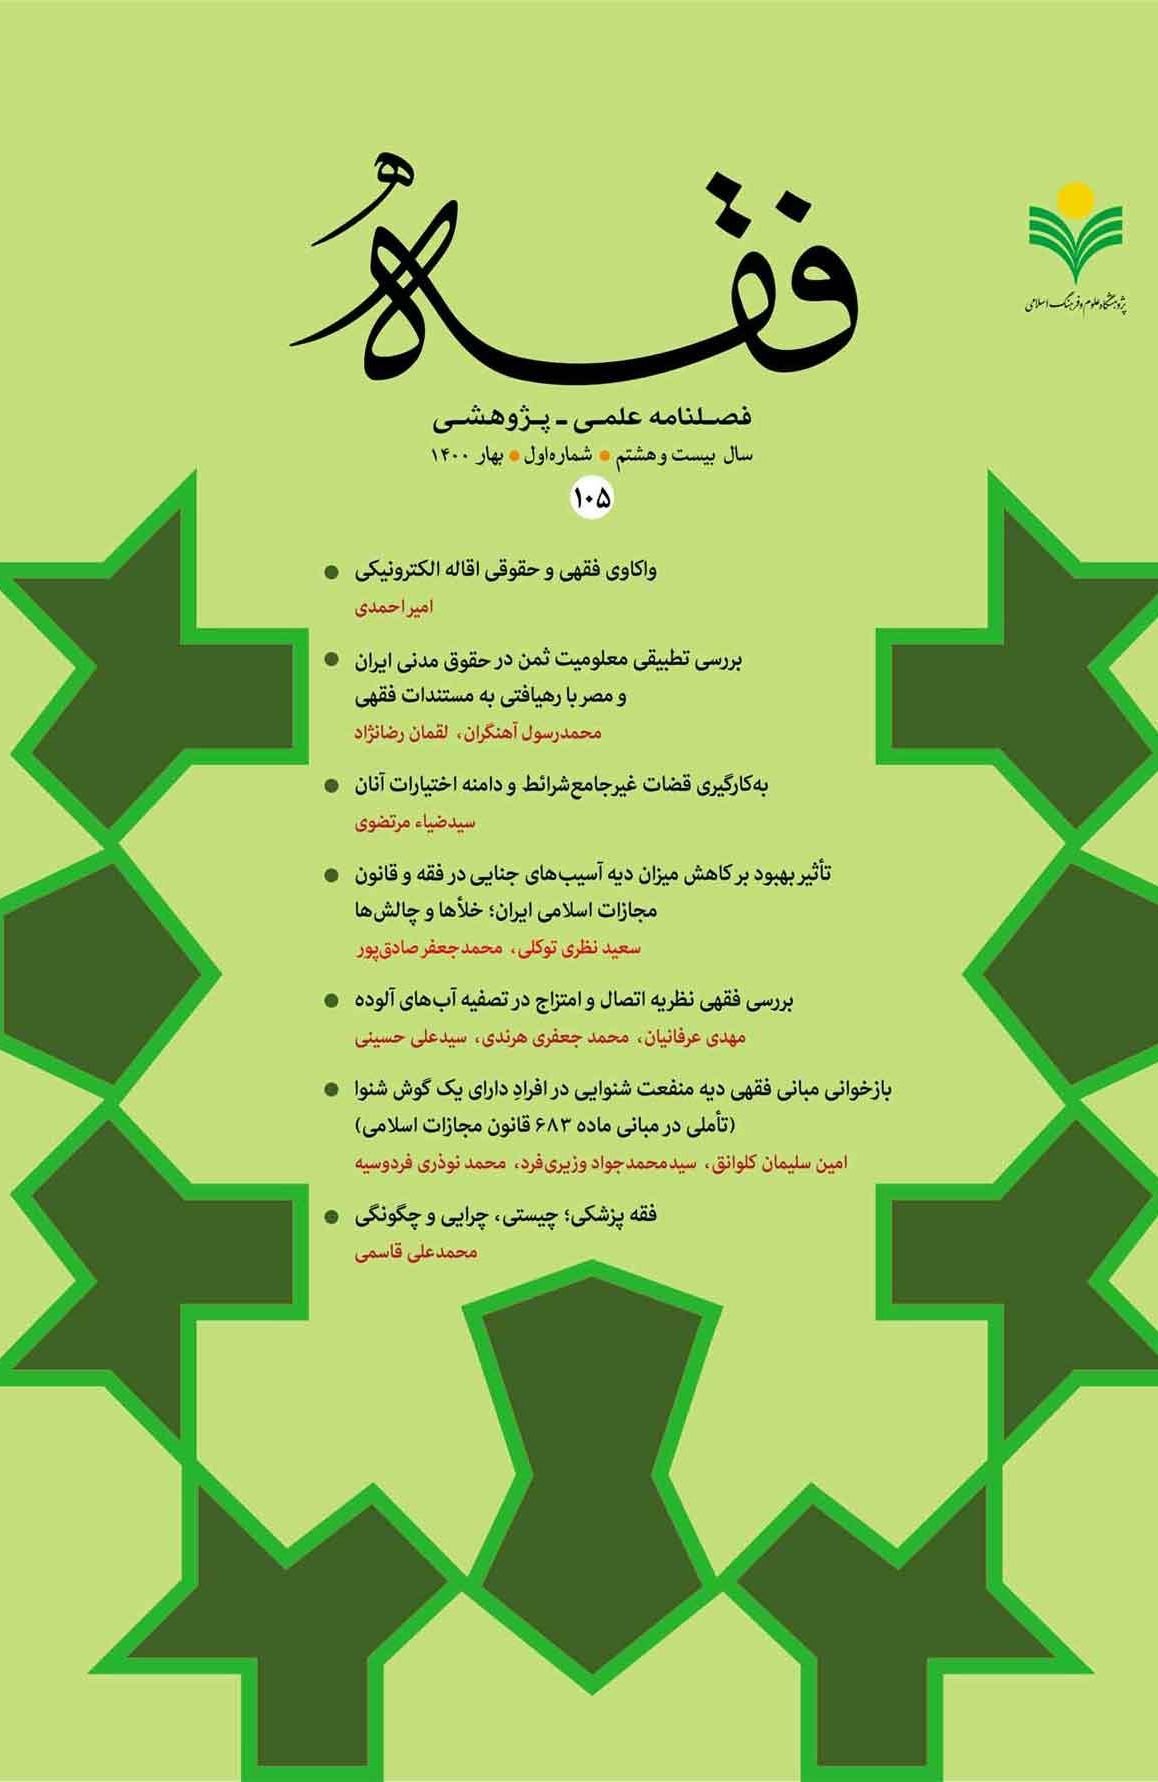 فقه
پژوهشگاه علوم و فرهنگ اسلامی
فصلنامه علمی ـ پژوهشی
سال بیست و هشتم • شماره اول • بهار ۱۴۰۰
۱۰۵
واکاوی فقهی و حقوقی اقاله الکترونیکی
امیر احمدی
بررسی تطبیقی معلومیت ثمن در حقوق مدنی ایران
و مصر با رهیافتی به مستندات فقهی
محمدرسول آهنگران، لقمان رضانژاد
به‌کارگیری قضات غیرجامع‌شرائط و دامنه اختیارات آنان
سیدضیاء مرتضوی
تأثیر بهبود بر کاهش میزان دیه آسیب‌های جنایی در فقه و قانون
مجازات اسلامی ایران؛ خلأها و چالش‌ها
سعید نظری توکلی، محمدجعفر صادق‌پور
بررسی فقهی نظریه اتصال و امتزاج در تصفیه آب‌های آلوده
مهدی عرفانیان، محمد جعفری هرندی، سیدعلی حسینی
بازخوانی مبانی فقهی دیه منفعت شنوایی در افرادِ دارای یک گوش شنوا
(تأملی در مبانی ماده ۶۸۳ قانون مجازات اسلامی)
امین سلیمان کلوانق، سیدمحمدجواد وزیری‌فرد، محمد نوذری فردوسیه
فقه پزشکی؛ چیستی، چرایی و چگونگی
محمدعلی قاسمی